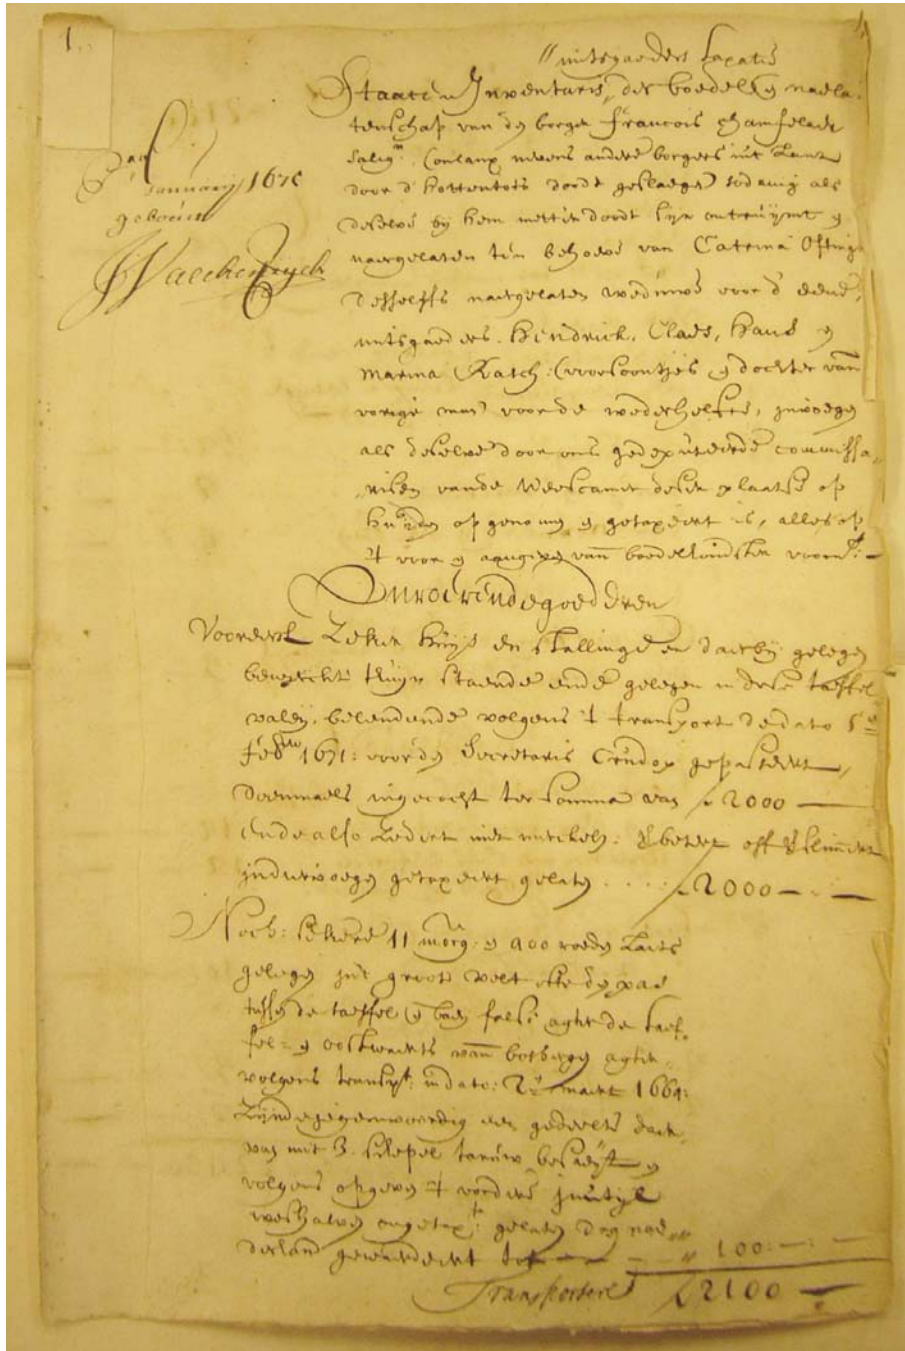 1.
mitsgaeders taxatie
Staat en Inventaris, der boedel en naela-
tenschap van den borger Francois Champelaer
salig.r (onlanx nevens andere borgers int Lant
door d' hottentots doodt geslagen) sodanig als
deselve by hem metter doodt sijn ontruijmt en
naergelaten ten behoeve van Catrina Osting
desselfs naergelaten weduwe voor d' eene,
mitsgaeders Hendrick, Claes, Hans en
Marina Rasch: (voorsoontjes en dochter van
vorige man voor de wederhelfte, invoegen
als deselve door ons gedeputeerde commissa-
rissen vande Weescamer deser plaetse op
huijden opgenomen en getaxeert is, alles op
't voor en aengeven van boedelhoudster voorn.t:
januarij 167
geboeckt
Onroerende goederen
Vooreerst Seker huijs en stallinge en daerbij gelegen
thuijn staende ende gelegen in dese taeffel
valeij, belendende volgens 't transport de dato 5.e
feb.ro 1671: voor den Secretaris Crudop gepasseert,
doenmaels ingecocht ter somma van ƒ 2000 —
ende also sedert niet verbetert off
invoegen getaxeert gelaten .... ƒ 2000 — : —
Noch: sekere 11 morg: en 400 roeden Lants
gelegen int groote velt
tussen de taeffel en baeij fals: agter de taef-
fel= en oostwaerts van bosbergen agter-
volgens transp.t: in dato: 2.e maert 1664:
Sijnde jegenwoordig een gedeelte daer
van met 3. schepel taruw besaeijt en
volgens opgeven 't vordere inutijl
weshalven ongetax.t: gelaten dog nae
gewardeert tot — — „ 100: — : —
Transporteere ƒ 2100 —